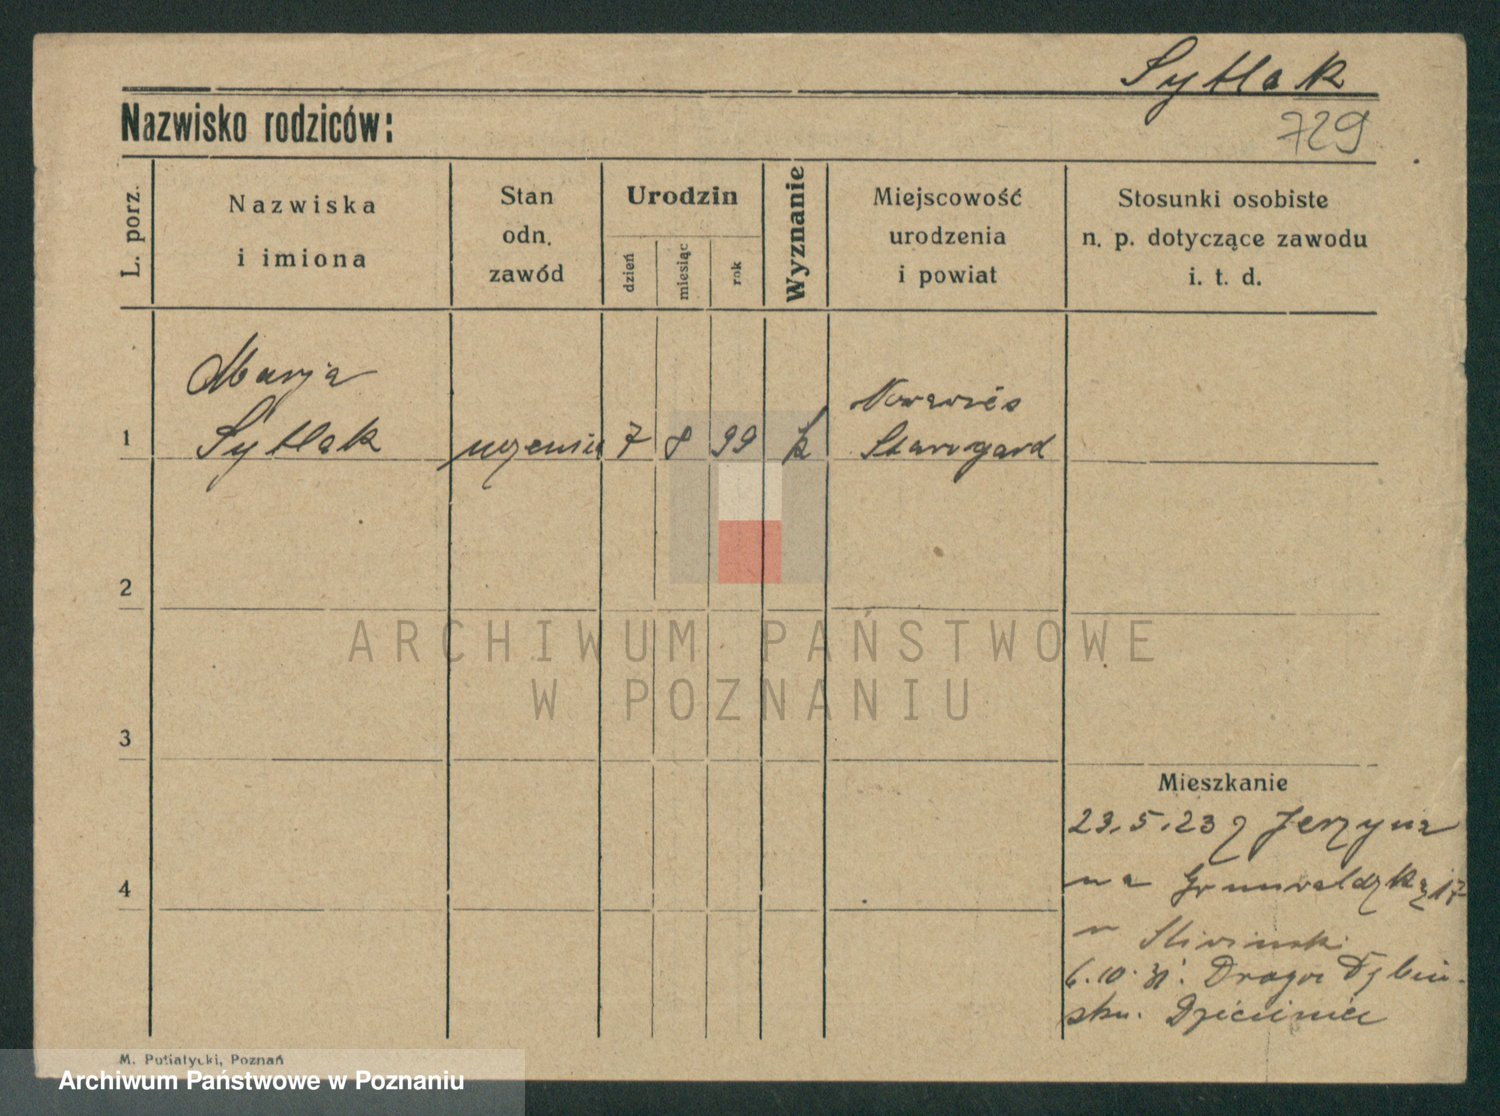 Sytlak
Nazwisko rodziców:
729
L. porz.
Nazwiska
i imiona
Stan
odn.
zawód
Urodzin
dzień
miesiąc
rok
Wyznanie
Miejscowość
urodzenia
i powiat
Stosunki osobiste
n. p. dotyczące zawodu
i. t. d.
1
Marja
Sytlak
7
8
99
k
Nowawieś
Starogard
2
ARCHIWUM PAŃSTWOWE
W POZNANIU
3
Mieszkanie
23.5.23 z Jerzyna
na Grunwaldzką 17
4
6.10.31. Droga Dębiń-
ska.
M. Putiatycki, Poznań
Archiwum Państwowe w Poznaniu